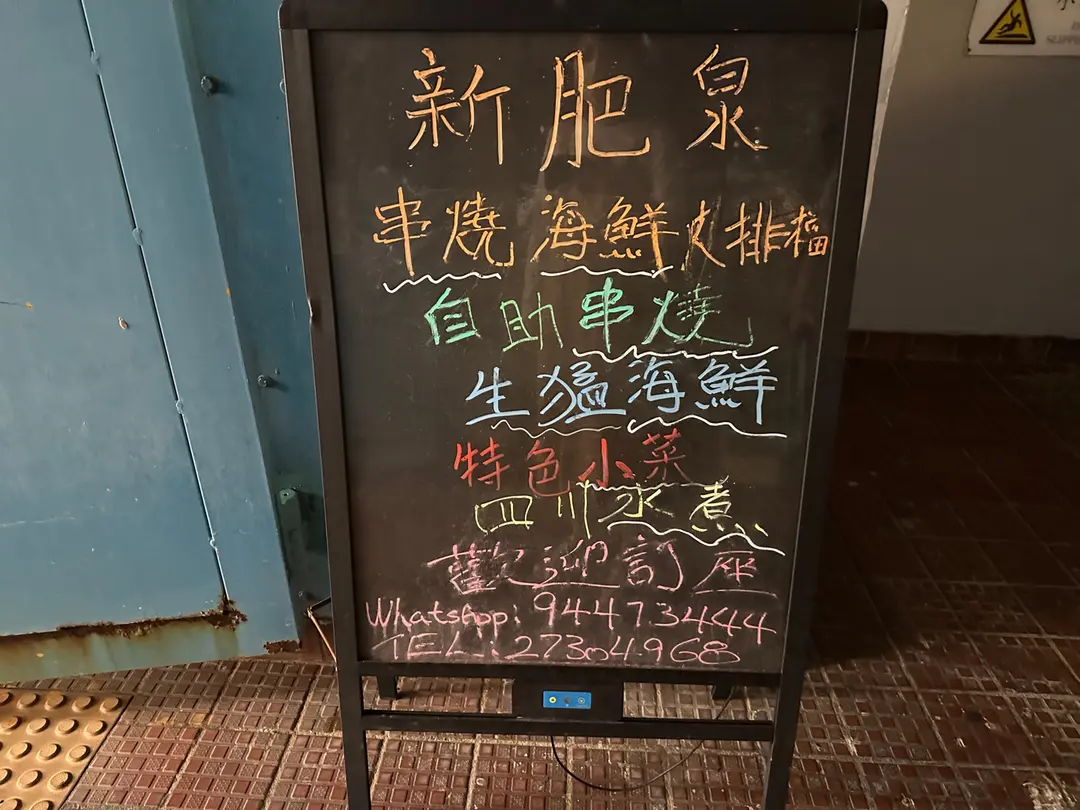 新肥泉
串燒 海鮮大排檔
自助串燒
生猛海鮮
特色小菜
四川水煮
歡迎訂座
WhatsApp: 94473444
TEL: 27304968